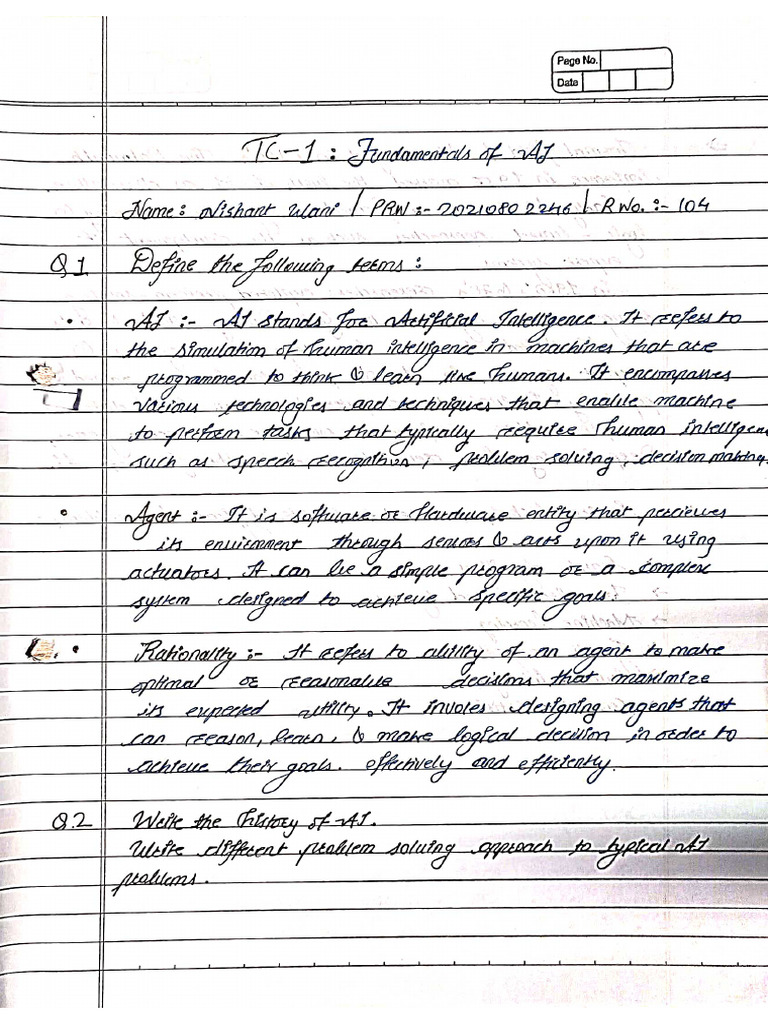 Page No.
Date
TC-1 : Fundamentals of AI
Name : Nishant Wani / PRN :- 20210802246 / R No. :- 104
Q1 Define the following terms :
• AI :- AI stands for Artificial Intelligence. It refers to
the simulation of human intelligence in machines that are
programmed to think & learn like humans. It encompasses
various technologies and techniques that enable machine
to perform tasks that typically require human intelligence
such as speech recognition, problem solving, decision making
• Agent :- It is software or Hardware entity that percieves
its environment through sensors & acts upon it using
actuators. It can be a simple program or a complex
system designed to achieve specific goals.
• Rationality :- It refers to ability of an agent to make
optimal or reasonable decisions that maximize
its expected utility. It involes designing agents that
can reason, learn, & make logical decision in order to
achieve their goals. effectively and efficiently.
Q.2 Write the history of AI.
Write different problem solving approach to typical AI
problems.